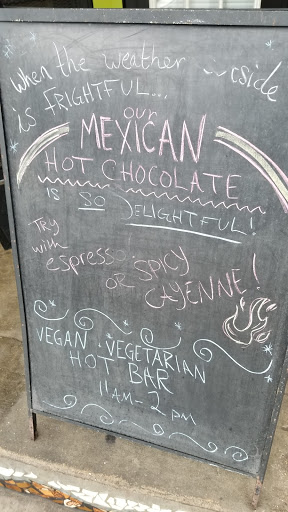 When the weather
is FRIGHTFUL...
our
MEXICAN
HOT CHOCOLATE
IS SO DELIGHTFUL!
TRY
with
espresso
OR SPICY
CAYENNE!
VEGAN · VEGETARIAN
HOT BAR
11AM-2PM